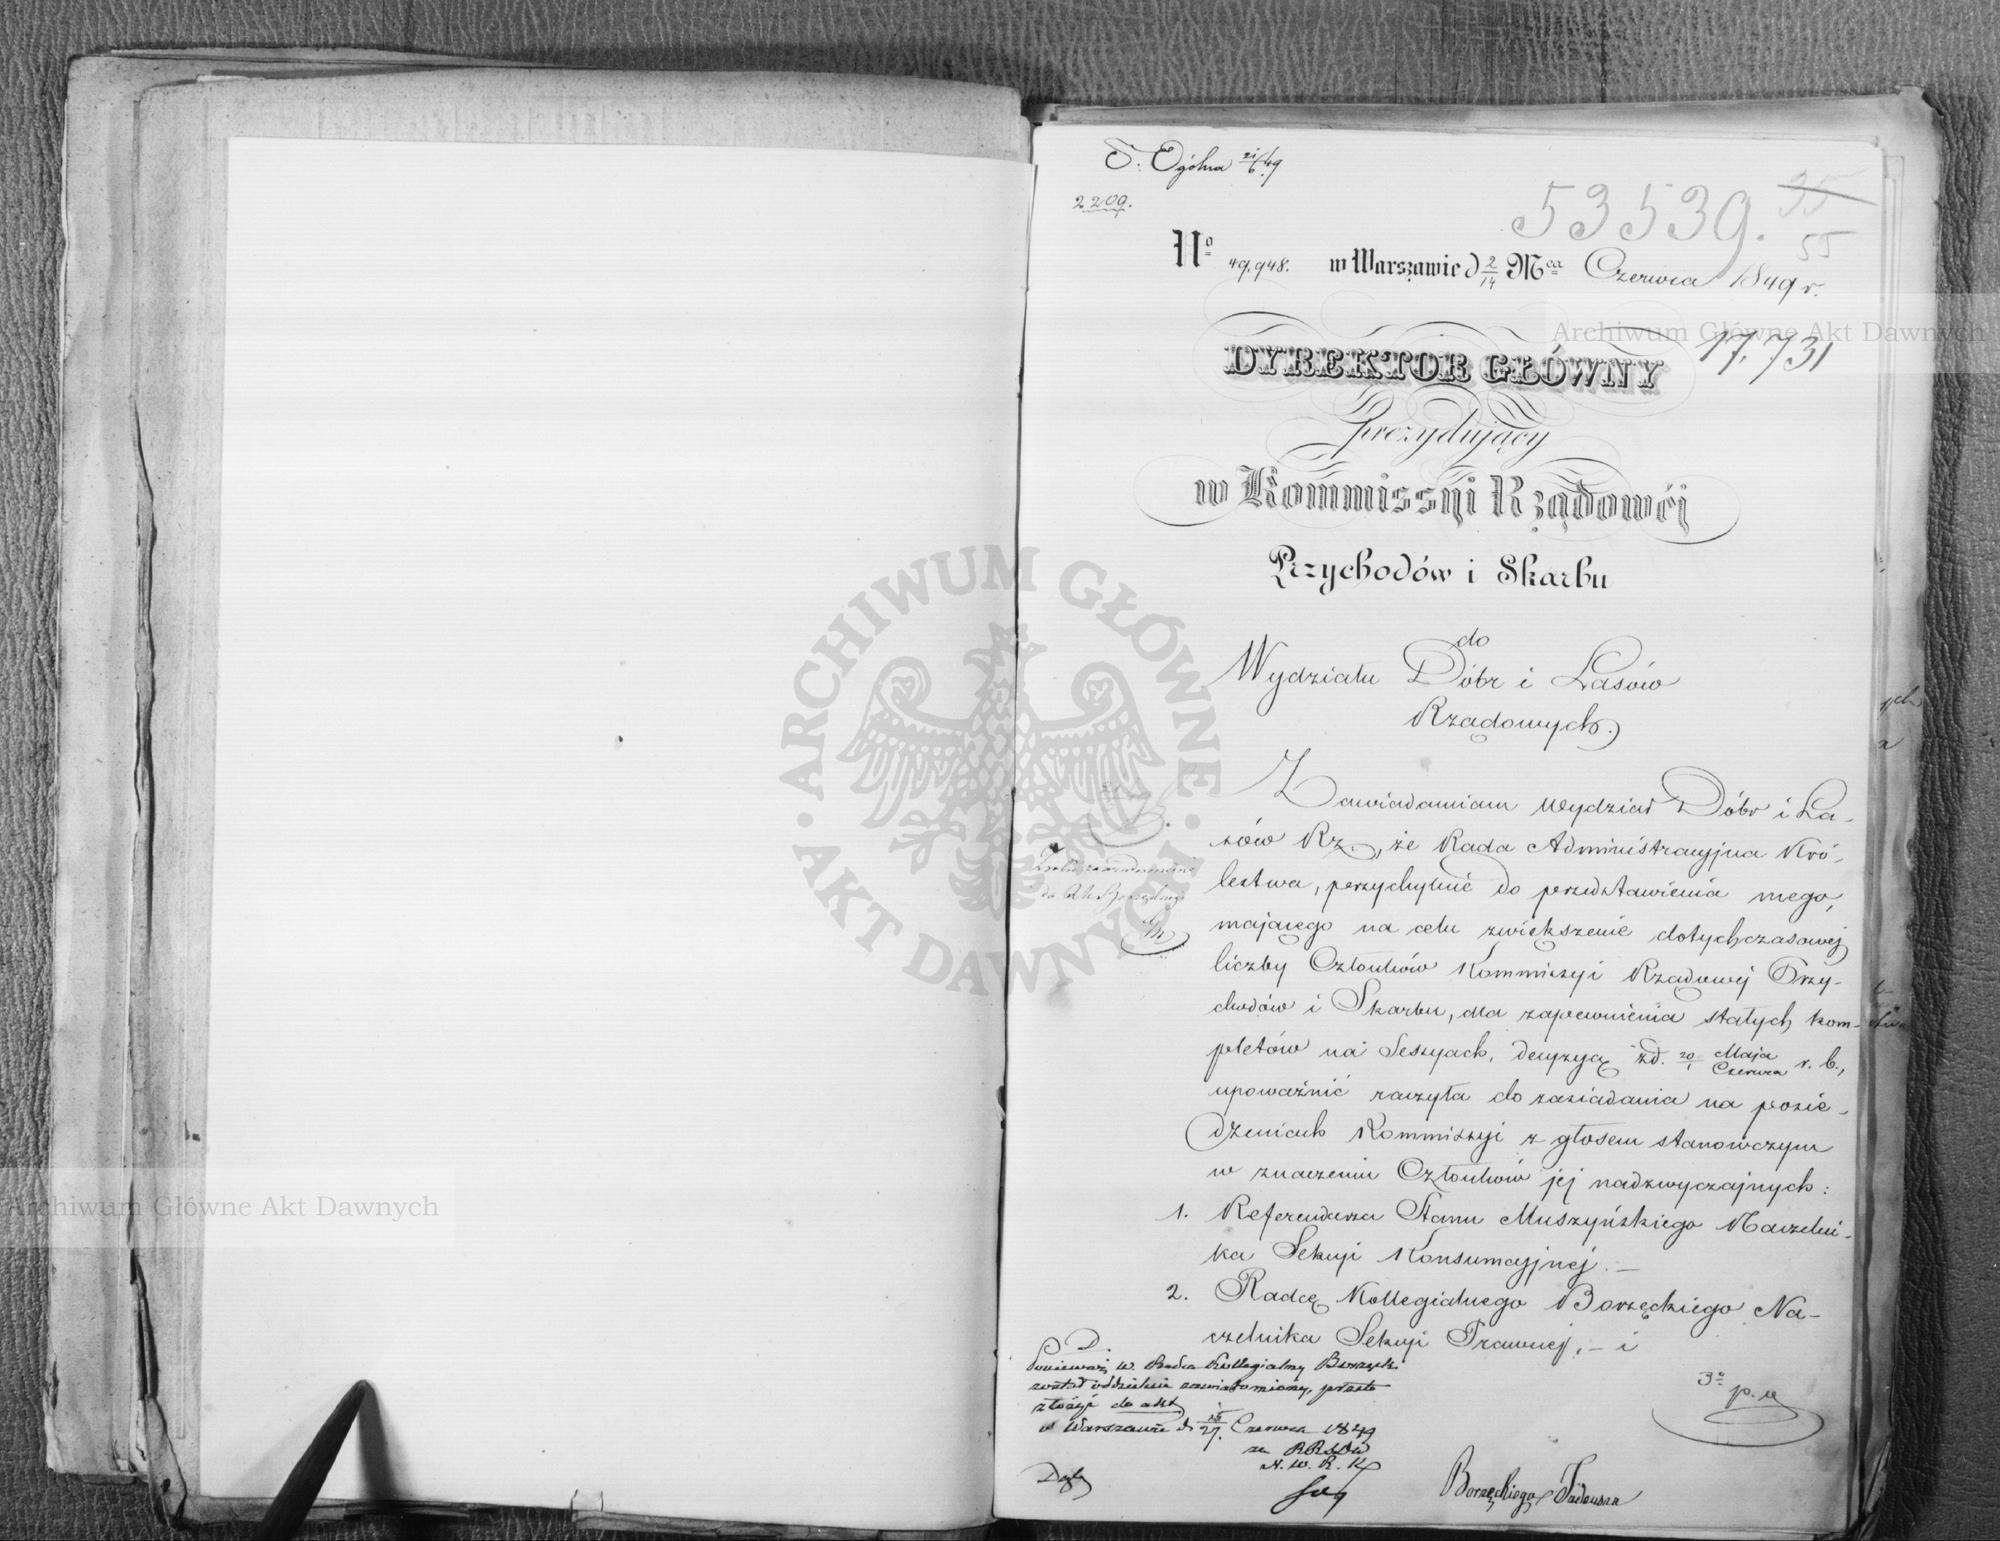 S. Ogólna 21/6 49
2209.
53539.
35
55
No 49,948. w Warszawie d 2/14 Mca Czerwca 1849 r.
17,731
DYREKTOR GŁÓWNY
prezydujący
w Kommissyi Rządowéj
Przychodów i Skarbu
do
Wydziału Dóbr i Lasów
Rządowych.
Zawiadamiam Wydział Dóbr i La-
sów Rz., że Rada Administracyjna Kró-
lestwa, przychylnie do przedstawienia mego,
mającego na celu zwiększenie dotychczasowej
liczby Członków Kommissyi Rządowej Przy-
chodów i Skarbu, dla zapewnienia stałych kom-
pletów na Sessyach, decyzyą z d. 20 Maja/1 Czerwca r. b.,
upoważnić raczyła do zasiadania na posie-
dzeniach Kommissyi z głosem stanowczym
w znaczeniu Członków jej nadzwyczajnych:
1. Referendarza Stanu Muszyńskiego Naczelni-
ka Sekcyi Konsumcyjnej. —
2. Radcę Kollegialnego Borzęckiego Na-
czelnika Sekcyi Prawnej, — i
3o p. u
D.
Ponieważ W. Radca Kollegialny Borzęcki
został oddzielnie zawiadomiony, przeto
złożyć do akt
w Warszawie d. 15/27. Czerwca 1849
N. W. R. K
Borzęckiego Tadeusza
ARCHIWUM GŁÓWNE · AKT DAWNYCH ·
Archiwum Główne Akt Dawnych
Archiwum Główne Akt Dawnych